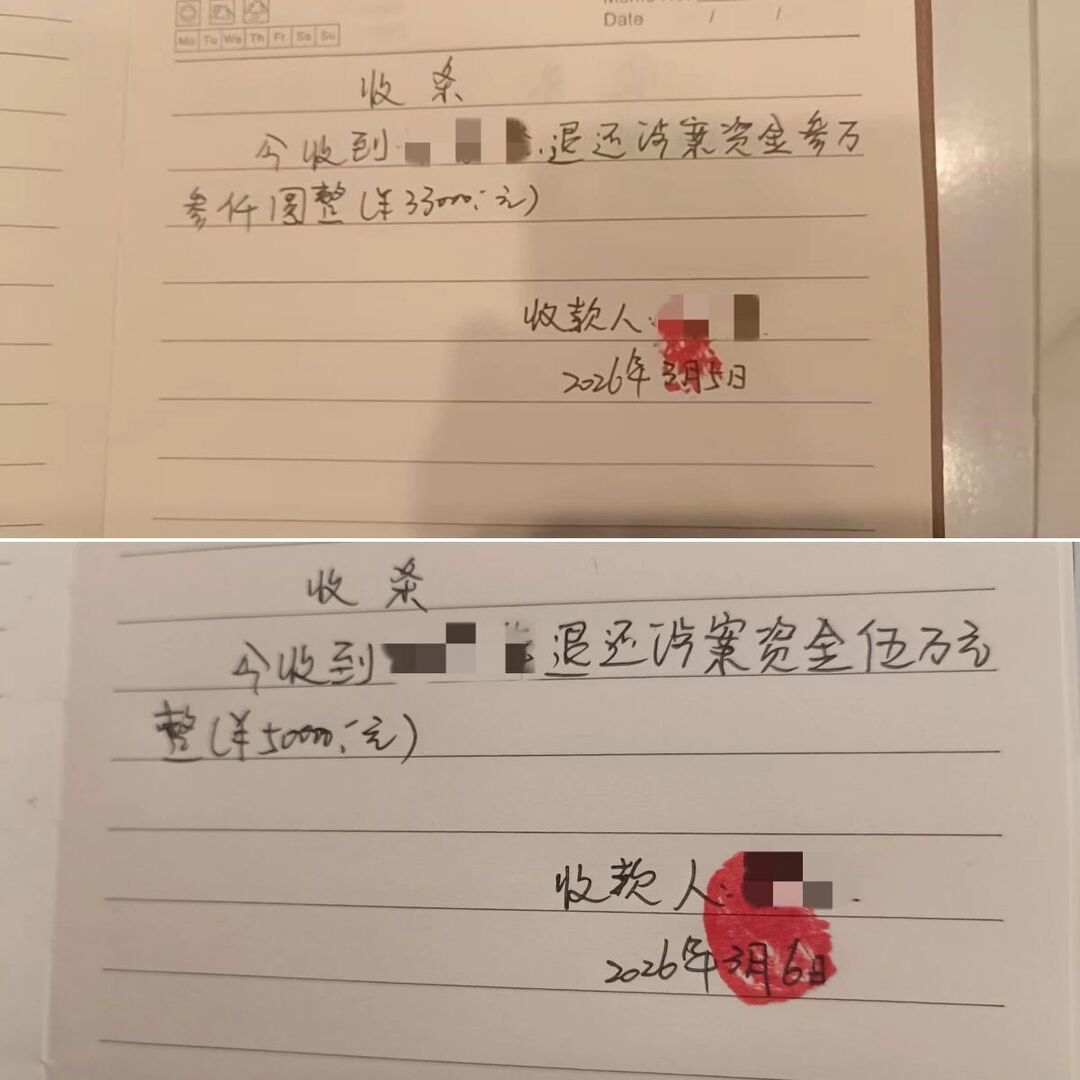 Memo No.
Date / /
Mo Tu We Th Fr Sa Su
收条
今收到 退还涉案资金叁万
叁仟圆整(洋33000.-元)
收款人:
2026年3月5日
收条
今收到 退还涉案资金伍万元
整(洋50000.-元)
收款人:
2026年3月6日